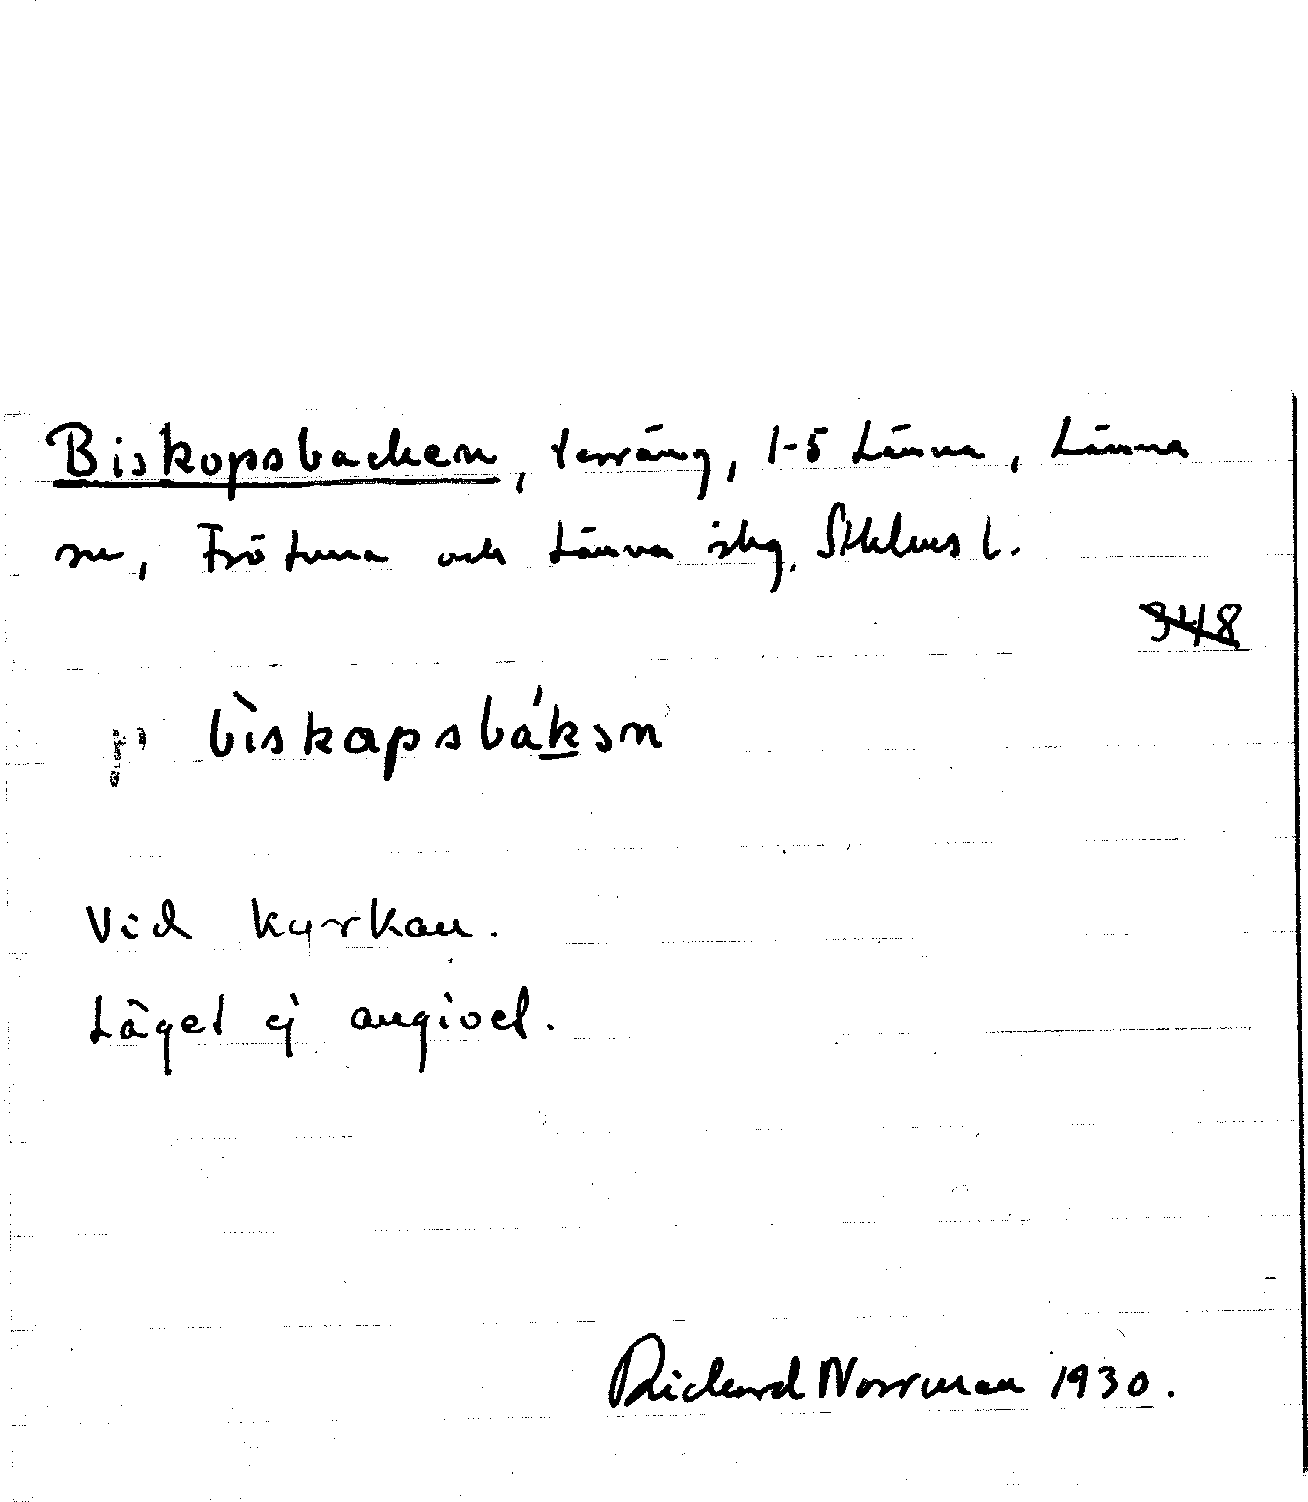 Biskopsbacken, terräng, 1-5 Länna, Länna
sn, Frötuna och Länna skg, Sthlms l.
348
bìskapsbákən
Vid kyrkan.
Läget ej angivet.
Rickard Norrman 1930.